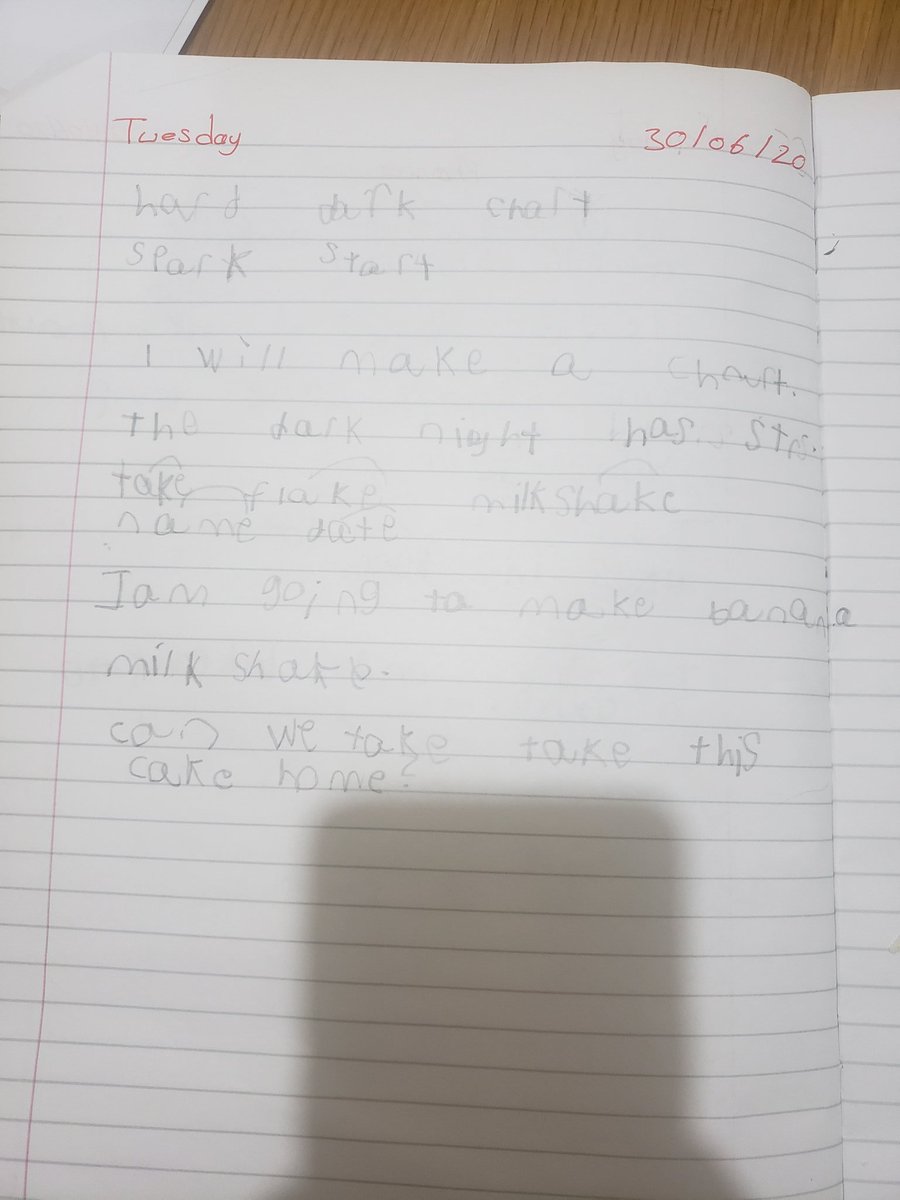 Tuesday 30/06/20
hard dark chart
spark start
I will make a chart.
the dark night has
take flake milkshake
name date
I am going to make banana
milk shake.
can we take take this
cake home?